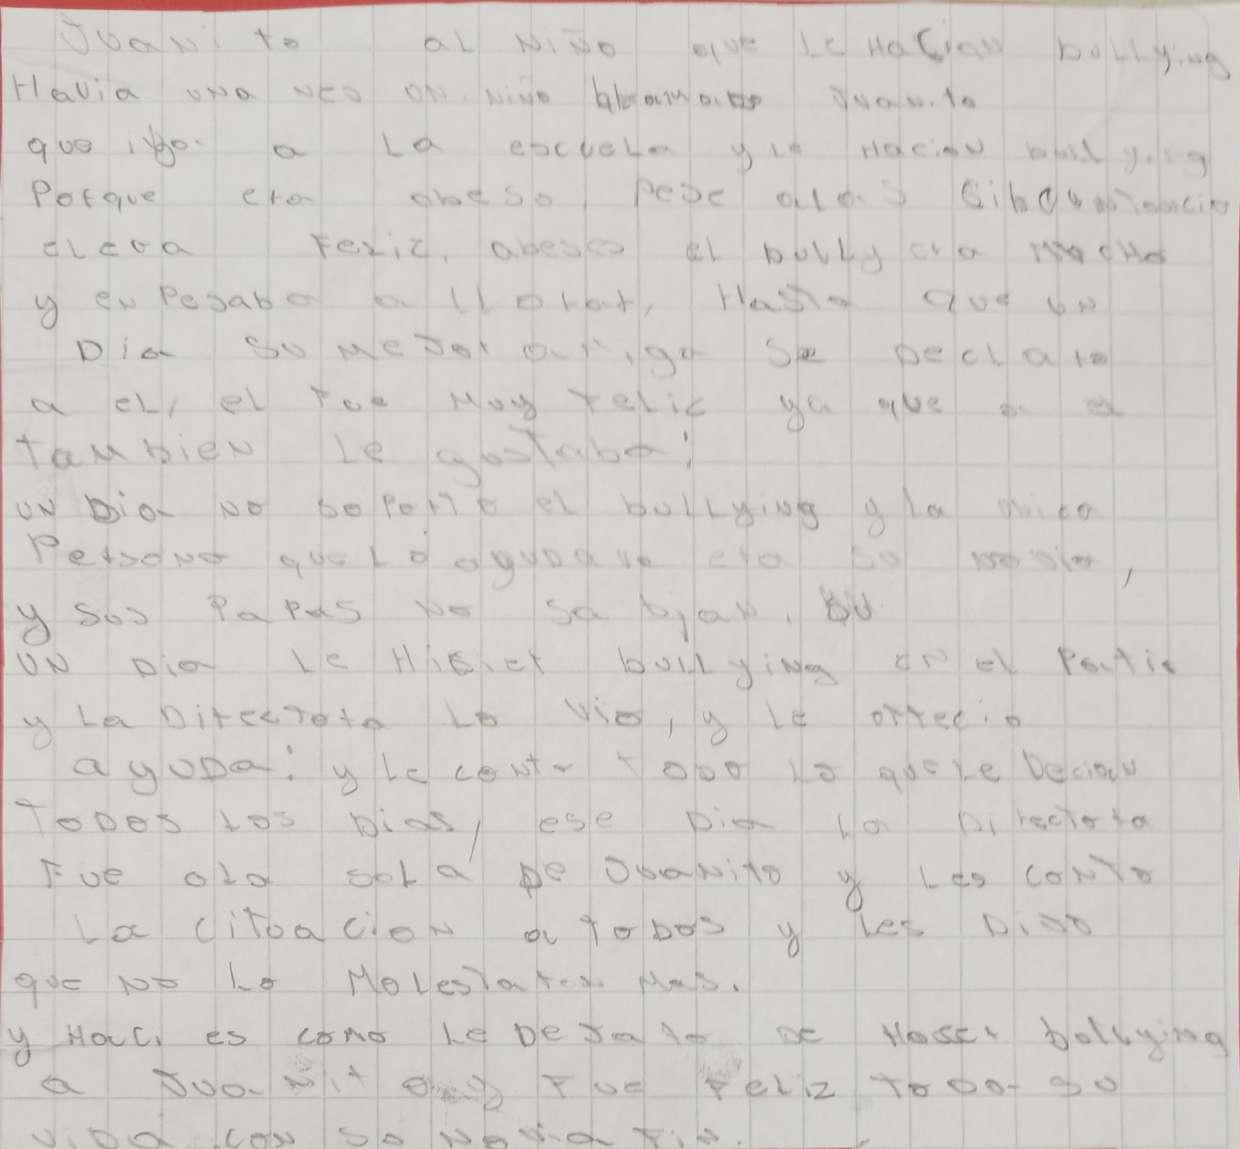 Juanito al niño que le Hacian bullying
Havia una ves un niño llamado Juanito
que iba a la escuela y le Hacian bullying
Porque era obeso, Pese a las
el era Feliz, abeses el bully era mucho
y enpesaba a llorar, Hasta que un
Dia su mejor amiga se Declaro
a el, el Fue Muy Feliz ya que a el
Tambien le gustaba!
un Dia no soporto el bullying y la unica
Persona que lo ayudava era su novia,
y sus Papas no sabian.
un Dia le Hisier bullying en el Patio
y la Directora lo vio, y le ofrecio
ayuda! y le conto todo lo que le Decian
Todos los Dias, ese Dia la Directora
Fue ala sala De Juanito y les conto
La cituacion a todos y les Dijo
que no lo Molestaran Mas.
y Haci es como le Dejaro de Hasser bollying
a Juanito y Fue Feliz Toda su
vida con su novia Fin.